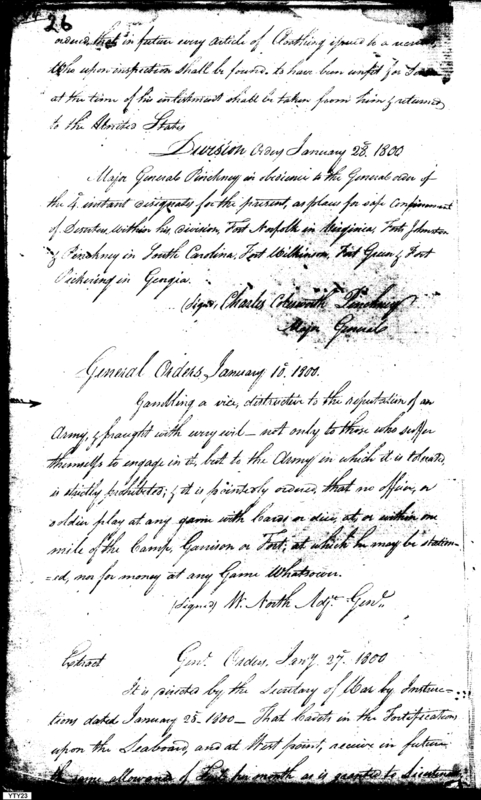 26
ordered that in future every article of Cloathing issued to a
Who upon inspection Shall be found to have been unfit for
at the time of his inlistment shall be taken from him & returned
to the United States
Division Orders January 28. 1800
Major General Pinchney in obedience to the General order of
the 4. instant designates for the present, as places for safe Confinement
of Deserters, within his division, Fort Norfolk in Virginia, Forts Johnston
& Pinchney in South Carolina, Fort Wilkinson, Fort Green & Fort
Pickering in Georgia.
(Signed) Charles Cotesworth Pinchney
Major General
General Orders, January 10. 1800.
Gambling a vice, distructive to the reputation of an
Army, & fraught with every evil – not only to those who suffer
themselfs to engage in it, but to the Army in which it is tolerated,
is strictly prohibited; & it is pointedly ordered, that no officer, or
soldier play at any game with Cards or dice, at, or within one
mile of the Camp, Garrison or Fort, at which he may be station-
=ed, nor for money at any Game Whatsoever.
(Signed) W. North Adjt. Genl.
Extract Genl. Orders, Jany. 27. 1800
It is directed by the Secretary of War by Instruc-
tions dated January 25. 1800 – That Cadets in the Fortifications
upon the Seaboard, and at West point, receive in future
the same allowance of per month as is granted to Lieutenants
YTY23